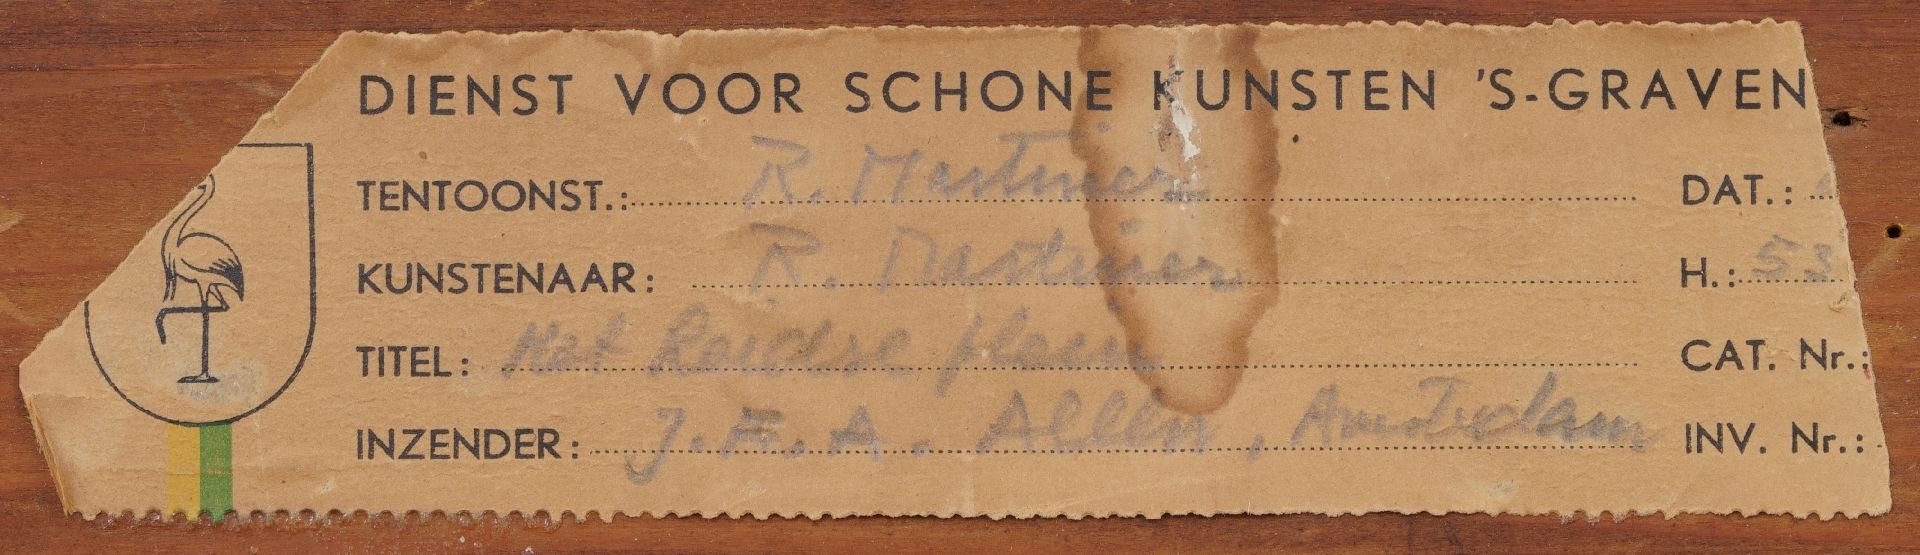 DIENST VOOR SCHONE KUNSTEN 'S-GRAVEN
TENTOONST.: R. Martinez DAT.:
KUNSTENAAR: R. Martinez H.: 53
TITEL: Het Leidse plein CAT. Nr.:
INZENDER: J.F.A. Allen, Amsterdam INV. Nr.: